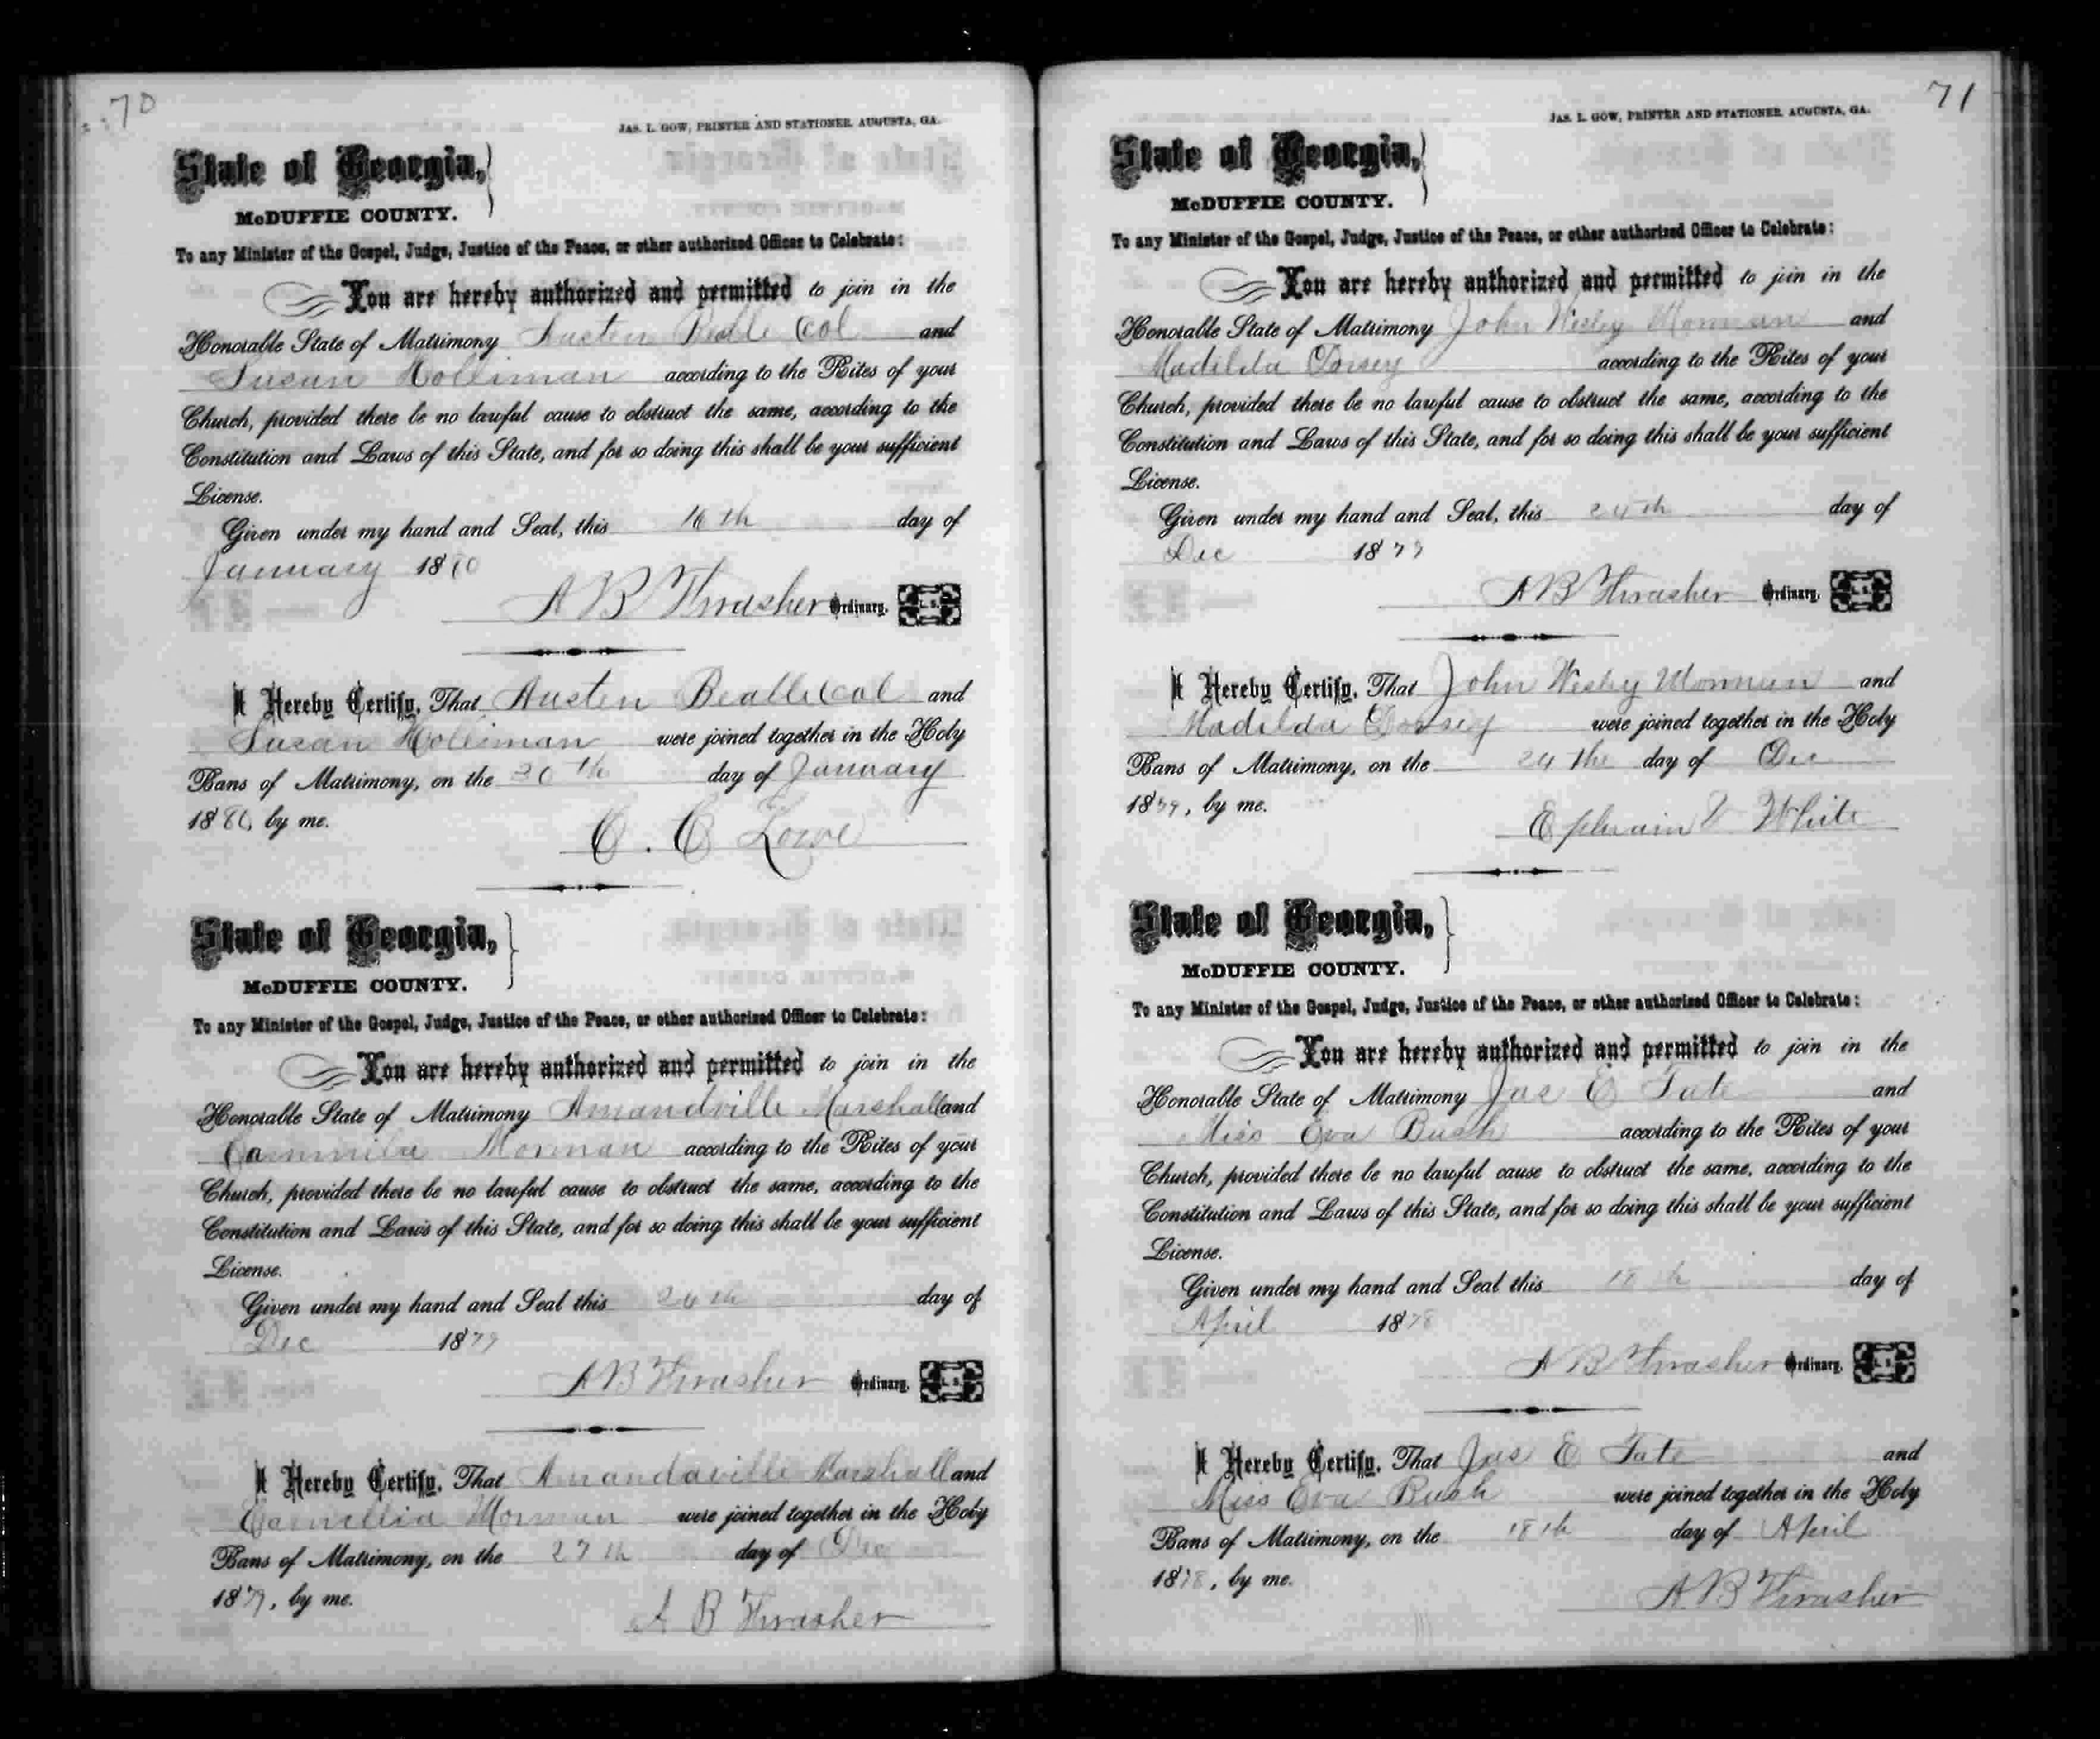 70
JAS. L. GOW, PRINTER AND STATIONER, AUGUSTA, GA.
State of Georgia,
McDUFFIE COUNTY.
To any Minister of the Gospel, Judge, Justice of the Peace, or other authorized Officer to Celebrate:
You are hereby authorized and permitted to join in the
Honorable State of Matrimony Austen Bealle Col and
Susan Holliman according to the Rites of your
Church, provided there be no lawful cause to obstruct the same, according to the
Constitution and Laws of this State, and for so doing this shall be your sufficient
License.
Given under my hand and Seal, this 16th day of
January 1880
A B Thrasher Ordinary. L. S.
I Hereby Certify, That Austen Bealle Col and
Susan Holliman were joined together in the Holy
Bans of Matrimony, on the 20th day of January
1880, by me.
C. C Lowe
State of Georgia,
McDUFFIE COUNTY.
To any Minister of the Gospel, Judge, Justice of the Peace, or other authorized Officer to Celebrate:
You are hereby authorized and permitted to join in the
Honorable State of Matrimony Amandville Marshall and
Morman according to the Rites of your
Church, provided there be no lawful cause to obstruct the same, according to the
Constitution and Laws of this State, and for so doing this shall be your sufficient
License.
Given under my hand and Seal this 24th day of
Dec 1879
A B Thrasher Ordinary. L. S.
I Hereby Certify, That Amandaville Marshall and
Morman were joined together in the Holy
Bans of Matrimony, on the 27th day of Dec
1879, by me.
A B Thrasher
71
JAS. L. GOW, PRINTER AND STATIONER, AUGUSTA, GA.
State of Georgia,
McDUFFIE COUNTY.
To any Minister of the Gospel, Judge, Justice of the Peace, or other authorized Officer to Celebrate:
You are hereby authorized and permitted to join in the
Honorable State of Matrimony John Wesley Morman and
Madilda Dorsey according to the Rites of your
Church, provided there be no lawful cause to obstruct the same, according to the
Constitution and Laws of this State, and for so doing this shall be your sufficient
License.
Given under my hand and Seal, this 24th day of
Dec 1879
A B Thrasher Ordinary. L. S.
I Hereby Certify, That John Wesley Morman and
Madilda Dorsey were joined together in the Holy
Bans of Matrimony, on the 24th day of Dec
1879, by me.
Ephraim V White
State of Georgia,
McDUFFIE COUNTY.
To any Minister of the Gospel, Judge, Justice of the Peace, or other authorized Officer to Celebrate:
You are hereby authorized and permitted to join in the
Honorable State of Matrimony Jas E Tate and
Miss Eva Bush according to the Rites of your
Church, provided there be no lawful cause to obstruct the same, according to the
Constitution and Laws of this State, and for so doing this shall be your sufficient
License.
Given under my hand and Seal this 18th day of
April 1878
A B Thrasher Ordinary. L. S.
I Hereby Certify, That Jas E Tate and
Miss Eva Bush were joined together in the Holy
Bans of Matrimony, on the 18th day of April
1878, by me.
A B Thrasher